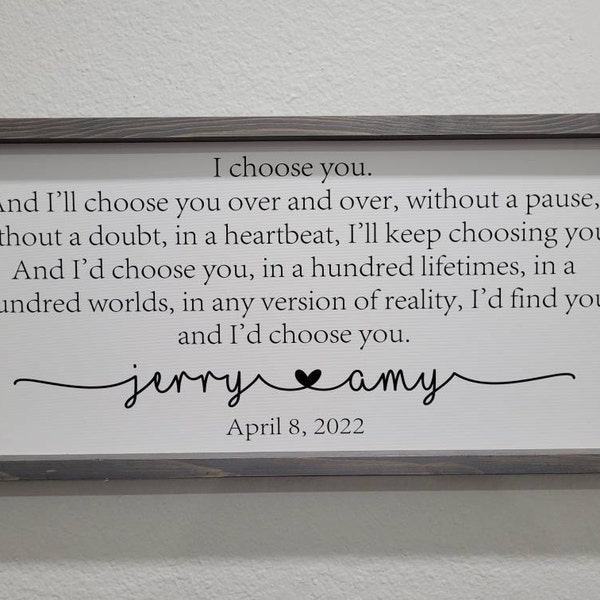 I choose you.
And I’ll choose you over and over, without a pause,
thout a doubt, in a heartbeat, I’ll keep choosing you
And I’d choose you, in a hundred lifetimes, in a
undred worlds, in any version of reality, I’d find you
and I’d choose you.
jerry ♥ amy
April 8, 2022